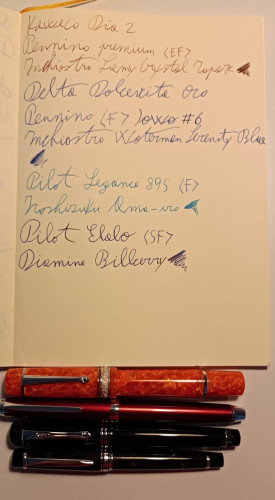 Kaweco Dia 2
Pennino premium <EF>
Inchiostro Lamy Crystal Topaz
Delta Dolcevita Oro
Pennino <F> Jowo #6
Inchiostro Waterman Serenity Blue
Pilot Legance 89S <F>
Iroshizuku Ama-iro
Pilot Elabo <SF>
Diamine Bilberry